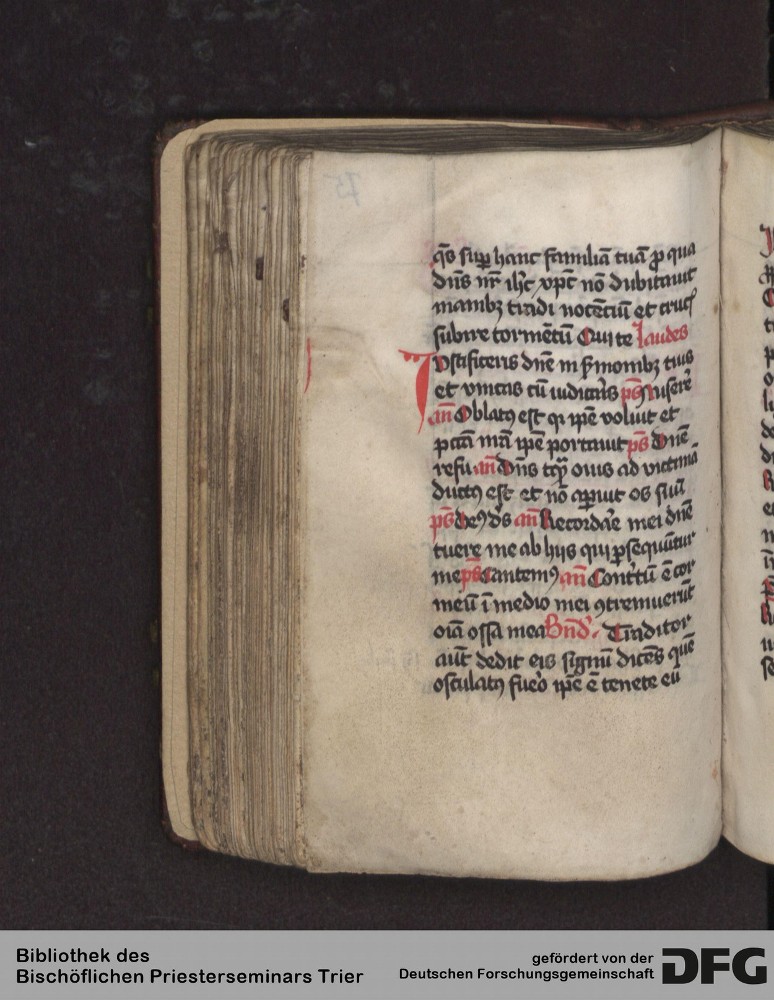 q̄s suꝑ hanc familiā tuā ꝓ qua
dn̄s nr̄ ih̄c xp̄c nō dubitauit
manibꝫ tradi nocētiū et crucꝭ
subire tormētū Qui te laudes
Iustificeris dn̄e in ẜmonibꝫ tuis
et vincas cū iudicaris ps̄ Miserē
an̄ Oblatꝯ est qꝛ ip̄e voluit et
pctā nrā ip̄e portauit ps̄ Dn̄e
refu an̄ Dn̄s tqͣ ouis ad victimā
ductꝯ est et nō aꝑuit os suū
ps̄ Deꝯ ds̄ an̄ Recordare mei dn̄e
tuere me ab hijs qui ꝑsequūtur
me ps̄ Cantemꝯ an̄ Contritū ē cor
meū ī medio mei ꝯtremuerūt
oīa ossa mea Bn̄d. Traditor
aūt dedit eis signū dicēs quē
osculatꝯ fuero ip̄e ē tenete eū
Bibliothek des
Bischöflichen Priesterseminars Trier
gefördert von der
Deutschen Forschungsgemeinschaft
DFG